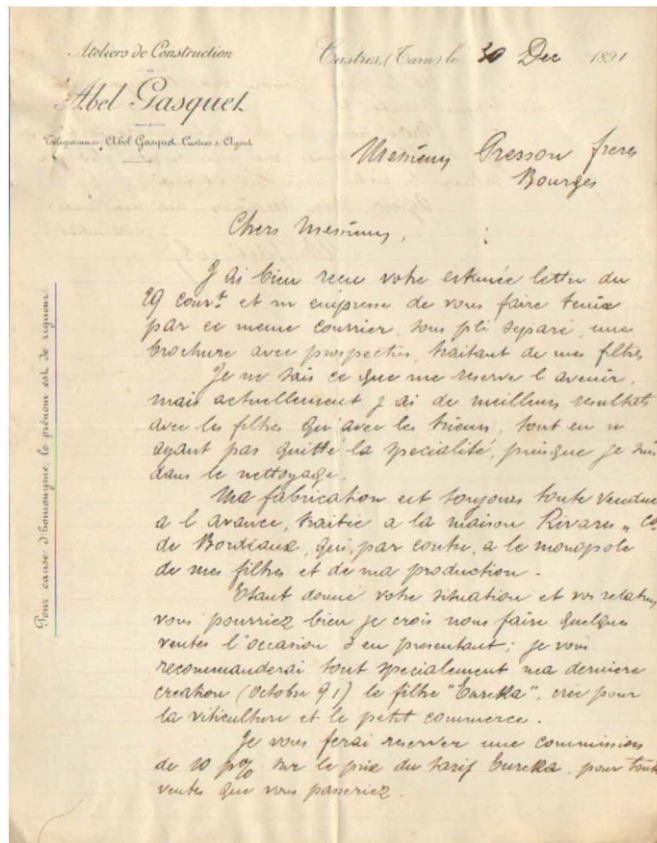 Ateliers de Construction
Abel Gasquet
Télégrammes, Abel Gasquet. Castres s/ Agout
Castres, (Tarn) le 30 Dec 1891
Messieurs Presson freres
Bourges
Chers Messieurs,
J ai bien recu votre estimée lettre du
29 cour.t et m empresse de vous faire tenir
par ce meme courrier, sous pli separé, une
brochure avec prospectus, traitant de mes filtres
Je ne sais ce que me reserve l avenir,
mais actuellement j ai de meilleurs resultats
avec les filtres qu'avec les trieurs, tout en n
ayant pas quitté la specialité, puisque je suis
dans le nettoyage.
Ma fabrication est toujours toute vendue
a l avance, traitée a la maison Rivares " Co
de Bordeaux, qui, par contre, a le monopole
de mes filtres et de ma production.
Etant donné votre situation et vos relations
vous pourriez bien je crois nous faire quelques
ventes l'occasion s en presentant; je vous
recommanderai tout specialement ma derniere
creation (Octobre 91) le filtre "Eureka", crée pour
la viticulture et le petit commerce.
Je vous ferai reserver une commission
de 10 p% sur le prix du tarif Eureka, pour toutes
ventes que vous passeriez.
Pour cause d'homonyme, le prénom est de rigueur